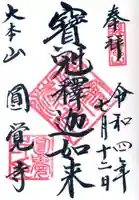 奉拝
令和四年
七月十二日
寶冠釋迦如来
大本山
圓覺寺